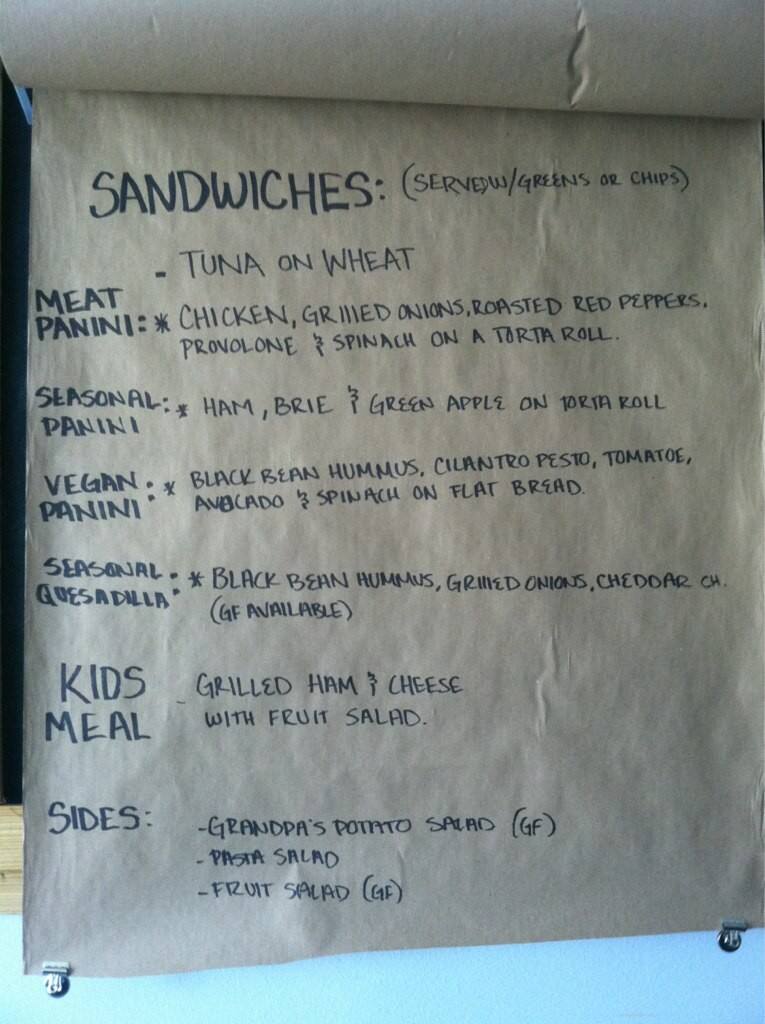 SANDWICHES: (SERVED W/GREENS OR CHIPS)
- TUNA ON WHEAT
MEAT
PANINI: * CHICKEN, GRILLED ONIONS, ROASTED RED PEPPERS,
PROVOLONE & SPINACH ON A TORTA ROLL.
SEASONAL: * HAM, BRIE & GREEN APPLE ON TORTA ROLL
PANINI
VEGAN : * BLACK BEAN HUMMUS, CILANTRO PESTO, TOMATOE,
PANINI AVOCADO & SPINACH ON FLAT BREAD.
SEASONAL : * BLACK BEAN HUMMUS, GRILLED ONIONS, CHEDDAR CH.
QUESADILLA (GF AVAILABLE)
KIDS - GRILLED HAM & CHEESE
MEAL WITH FRUIT SALAD.
SIDES: - GRANDPA'S POTATO SALAD (GF)
- PASTA SALAD
- FRUIT SALAD (GF)